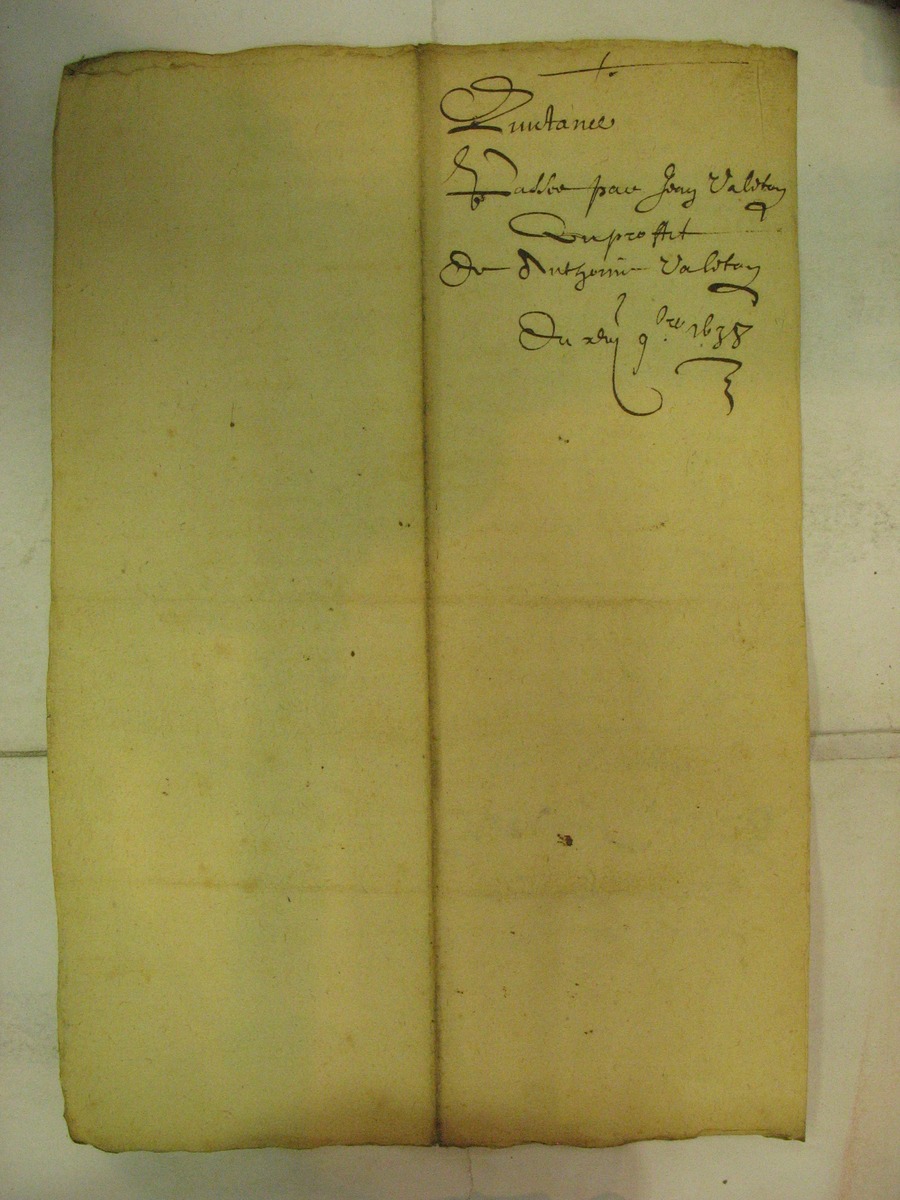 Quictance
Passee par Jean Valiton
Au proffit
De Anthoine Valiton
Du xviij 9bre 1638